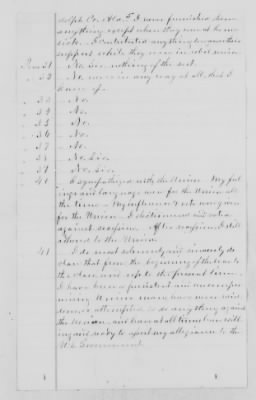 dolph Co. Ala. I never furnished them
anything except when they were at home
sick. I contributed nothing towards their
support while they were in rebel service
31 - No Sir nothing of the sort.
32 - No never in any way at all that I
knew of.
33 - No.
34 - No.
35 - No.
36 - No.
37 - No.
38 - No Sir.
39 - No Sir.
40 - I sympathized with the Union. My feel
ings and language were for the Union all
the time. My influence & vote were given
for the Union. I electioneered and voted
against secession. After secession I still
adhered to the Union.
41 - I do most solemnly and sincerely de
clare that from the beginning of the war to
the close and up to the present time
I have been a persistent and uncompro
mising Union man, have never said
done or attempted to do anything against
the Union, and have at all times been will
ing and ready to my allegiance to the
U.S. Government.